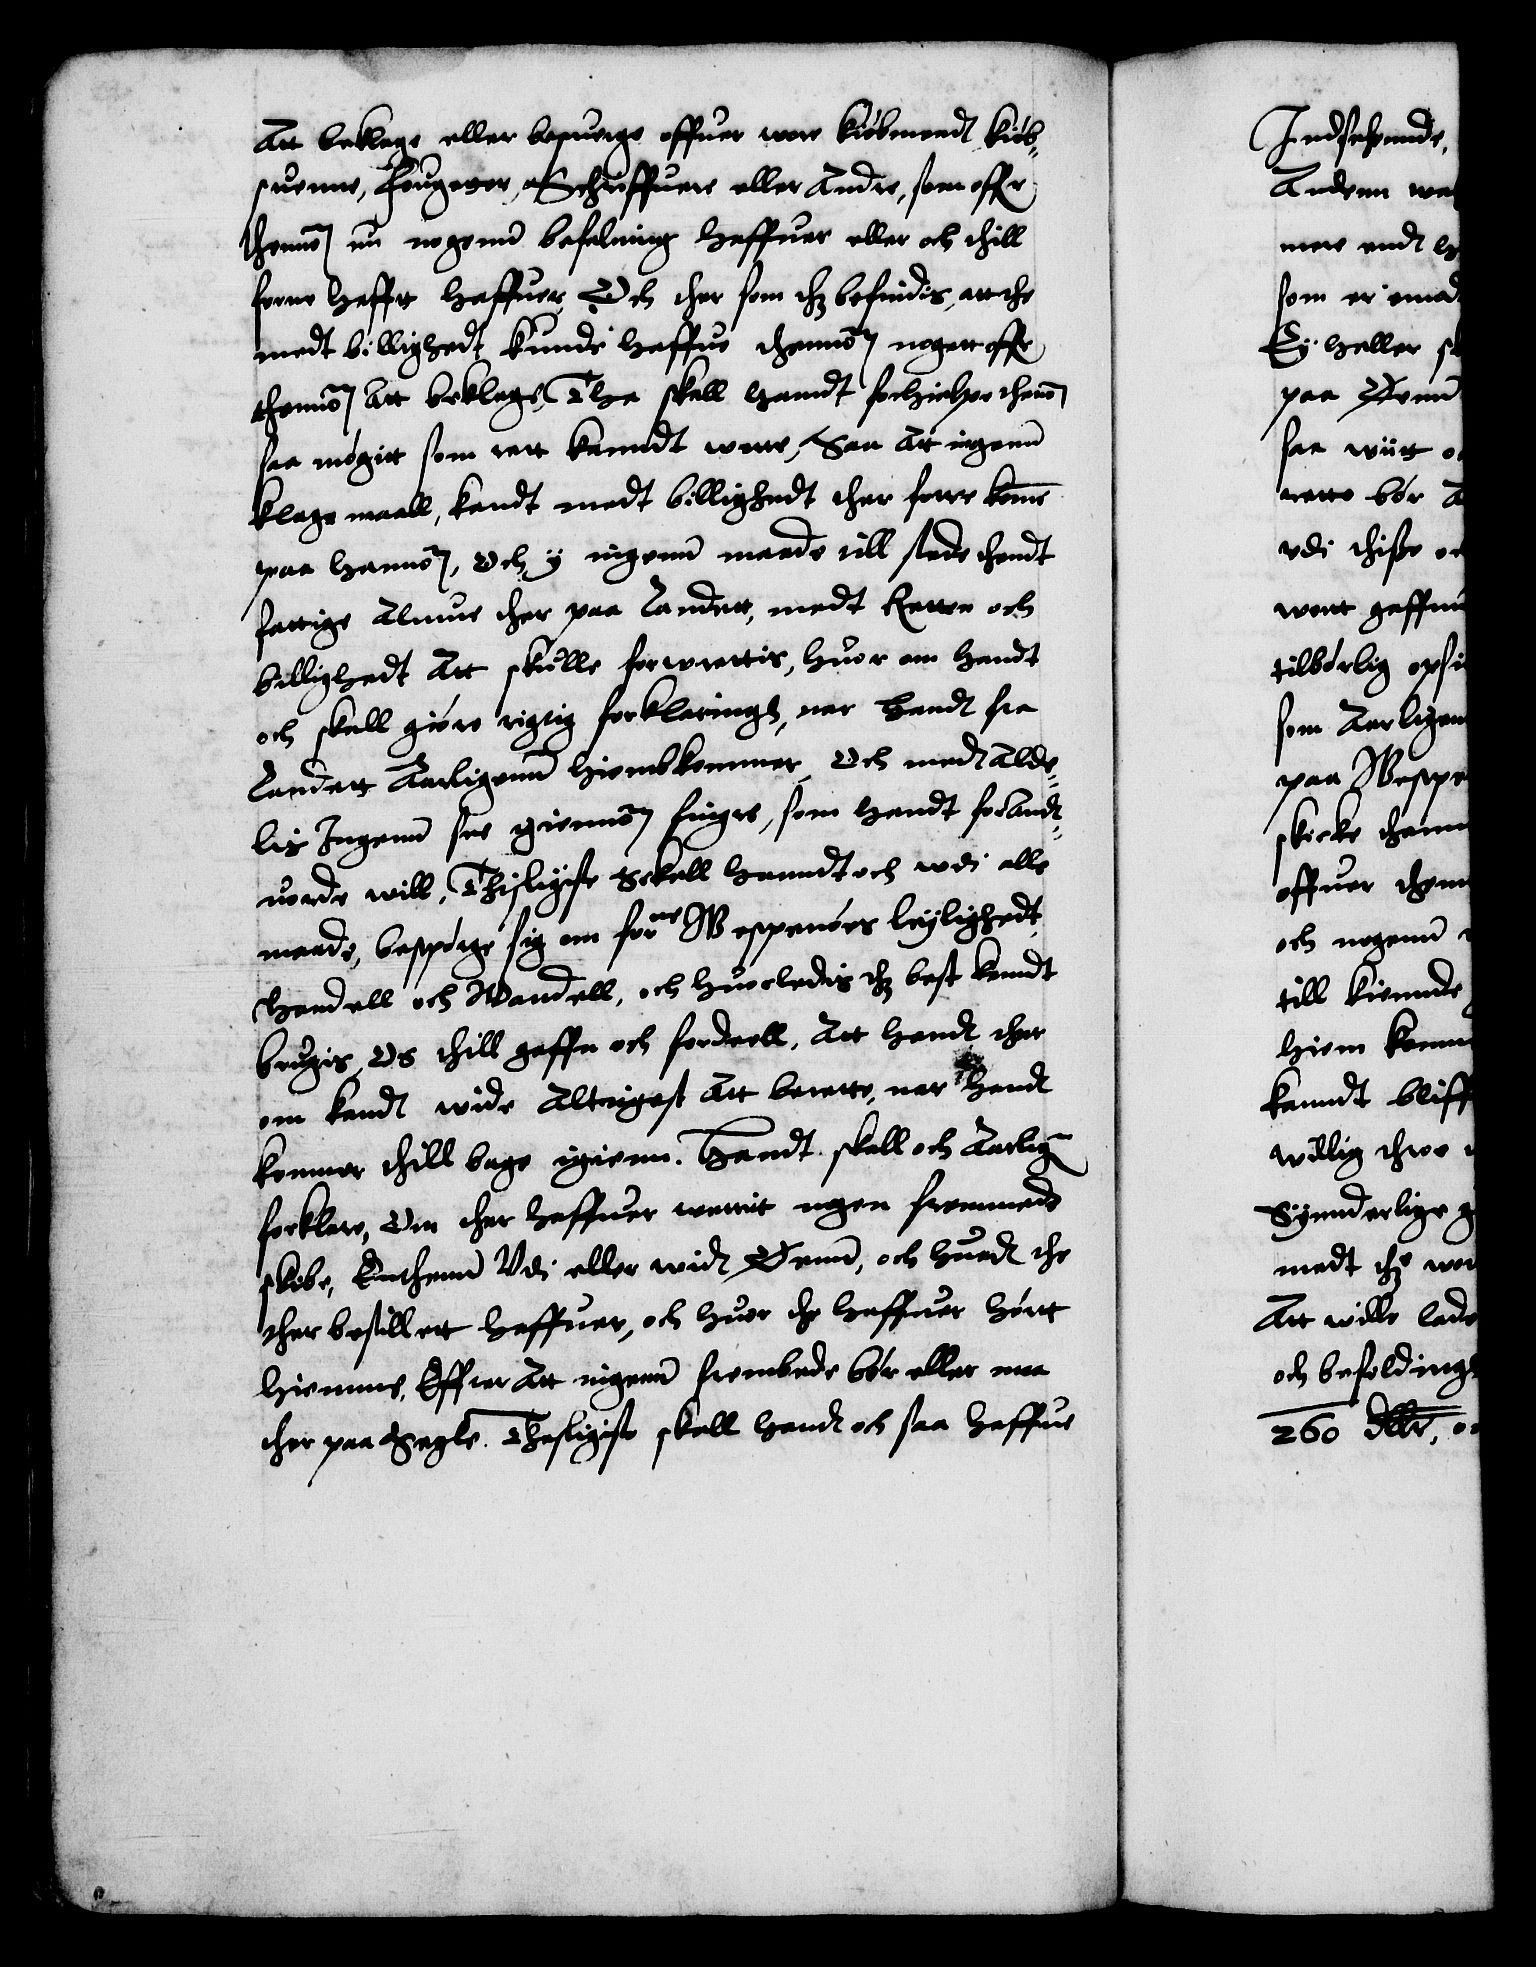 Att beklage eller besuerge offuer wore kiøbmendt kiøb-
suenne, Fougeder, Schriffuere eller Andre, som offr
thennom nu nogenn befalning haffuer eller och thill
forne hafft haffuer, Och ther som thz befindis, att the
medt billighedt kunde haffue thennom nogett offr
thennom Att beklage, Tha skall handt forhielpe thennom
saa møgitt som rett kanndt were, Saa Att ingenn
klage maall, kandt medt billighedt ther forre komme
paa hannom, Och y ingenn maade till stede thendt
fattige Almue ther paa Landett, medt Retten och
billighedt Att skulle forwrettis, huor om handt
och skall giøre rigtig forklaringh, nar Handt fra
Landett Aarligenn hiembkommer, Och medt Alde-
lis Ingenn see giennom fingre, som handt forAndt-
uorde will, Thisligiste Schall hanndt och wdi alle
maade, bespørge sig om forne Wespenøes leylighedt,
Handell och Wandell, och huorledis thz best kandt
brugis, Os thill gaffn och fordeell, Att handt ther
om kandt wide Altingest Att berette, nar Handt
kommer thill bage igienn. Handt skall och Aarligen
forklare, Om ther haffuer werritt nogen fremmede
skibe, Enthenn Vdi eller widt Øenn, och huadt the
ther bestillett haffuer, och huor the haffuer hørtt
hiemme, Effter Att ingenn frembede bør eller maa
ther paa Segle. Thesligiste skall handt och saa haffue
Indseeende,
Andenn
mere endt
som er
Ey heller
paa Øenn
saa witt
rette bør
vdi thisse
wertt gaffnn
tilbørlig opsi
som Aarligen
paa Wespe
skicke thenn
offuer thenn
och nogenn
till kiennde
hiem komm
kanndt bliff
willig thro
Synnderlige
medt thz
Att wille lade
och besoldingh
260 dlr,